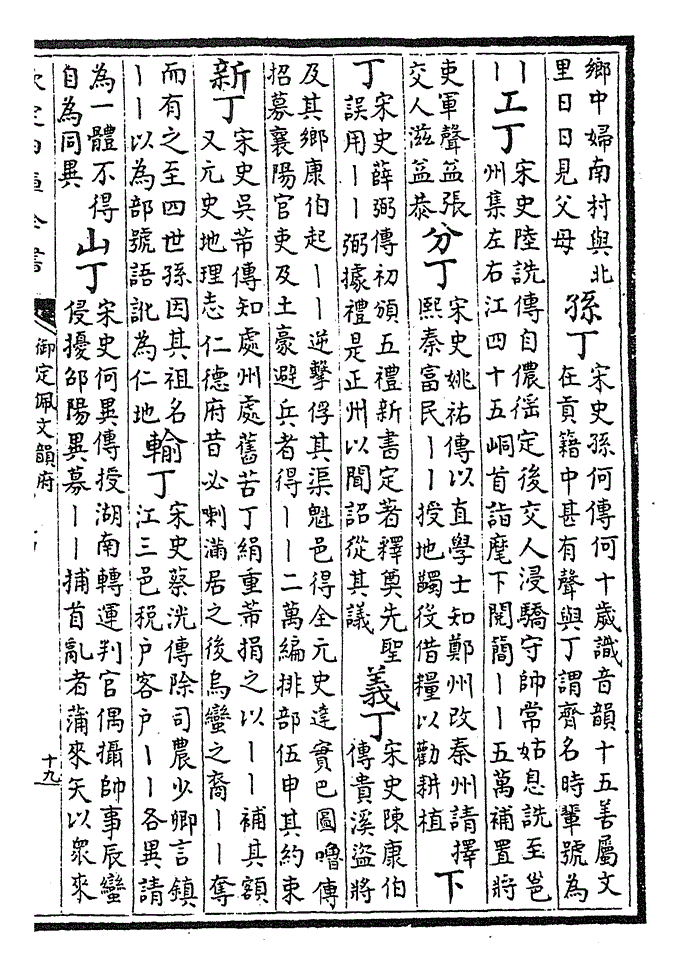 鄉中婦南村與北
里日日見父母
孫丁
宋史孫何傳何十歲識音韻十五善屬文
在貢籍中甚有聲與丁謂齊名時輩號為
丨
丨
工丁
宋史陸詵傳自儂徭定後交人浸驕守帥常姑息詵至邕
州集左右江四十五峒首詣麾下閱簡丨丨五萬補置將
吏軍聲益張
交人滋益恭
分丁
宋史姚祐傳以直學士知鄭州改秦州請擇
熙秦富民丨丨授地蠲役借糧以勸耕植
下
丁
宋史薛弼傳初頒五禮新書定著釋奠先聖
誤用丨丨弼據禮是正州以聞詔從其議
義丁
宋史陳康伯
傳貴溪盜將
及其鄉康伯起丨丨逆擊俘其渠魁邑得全元史達實巴圖嚕傳
招募襄陽官吏及土豪避兵者得丨丨二萬編排部伍申其約束
新丁
宋史吳芾傳知處州處舊苦丁絹重芾捐之以丨丨補其額
又元史地理志仁德府昔必喇滿居之後烏蠻之裔丨丨奪
而有之至四世孫因其祖名
丨丨以為部號語訛為仁地
輸丁
宋史蔡洸傳除司農少卿言鎮
江三邑稅户客户丨丨各異請
為一體不得
自為同異
山丁
宋史何異傳授湖南轉運判官偶攝帥事辰蠻
侵擾邵陽異募丨丨捕首亂者蒲來矢以衆來
欽定四庫全書
御定佩文韻府
十九